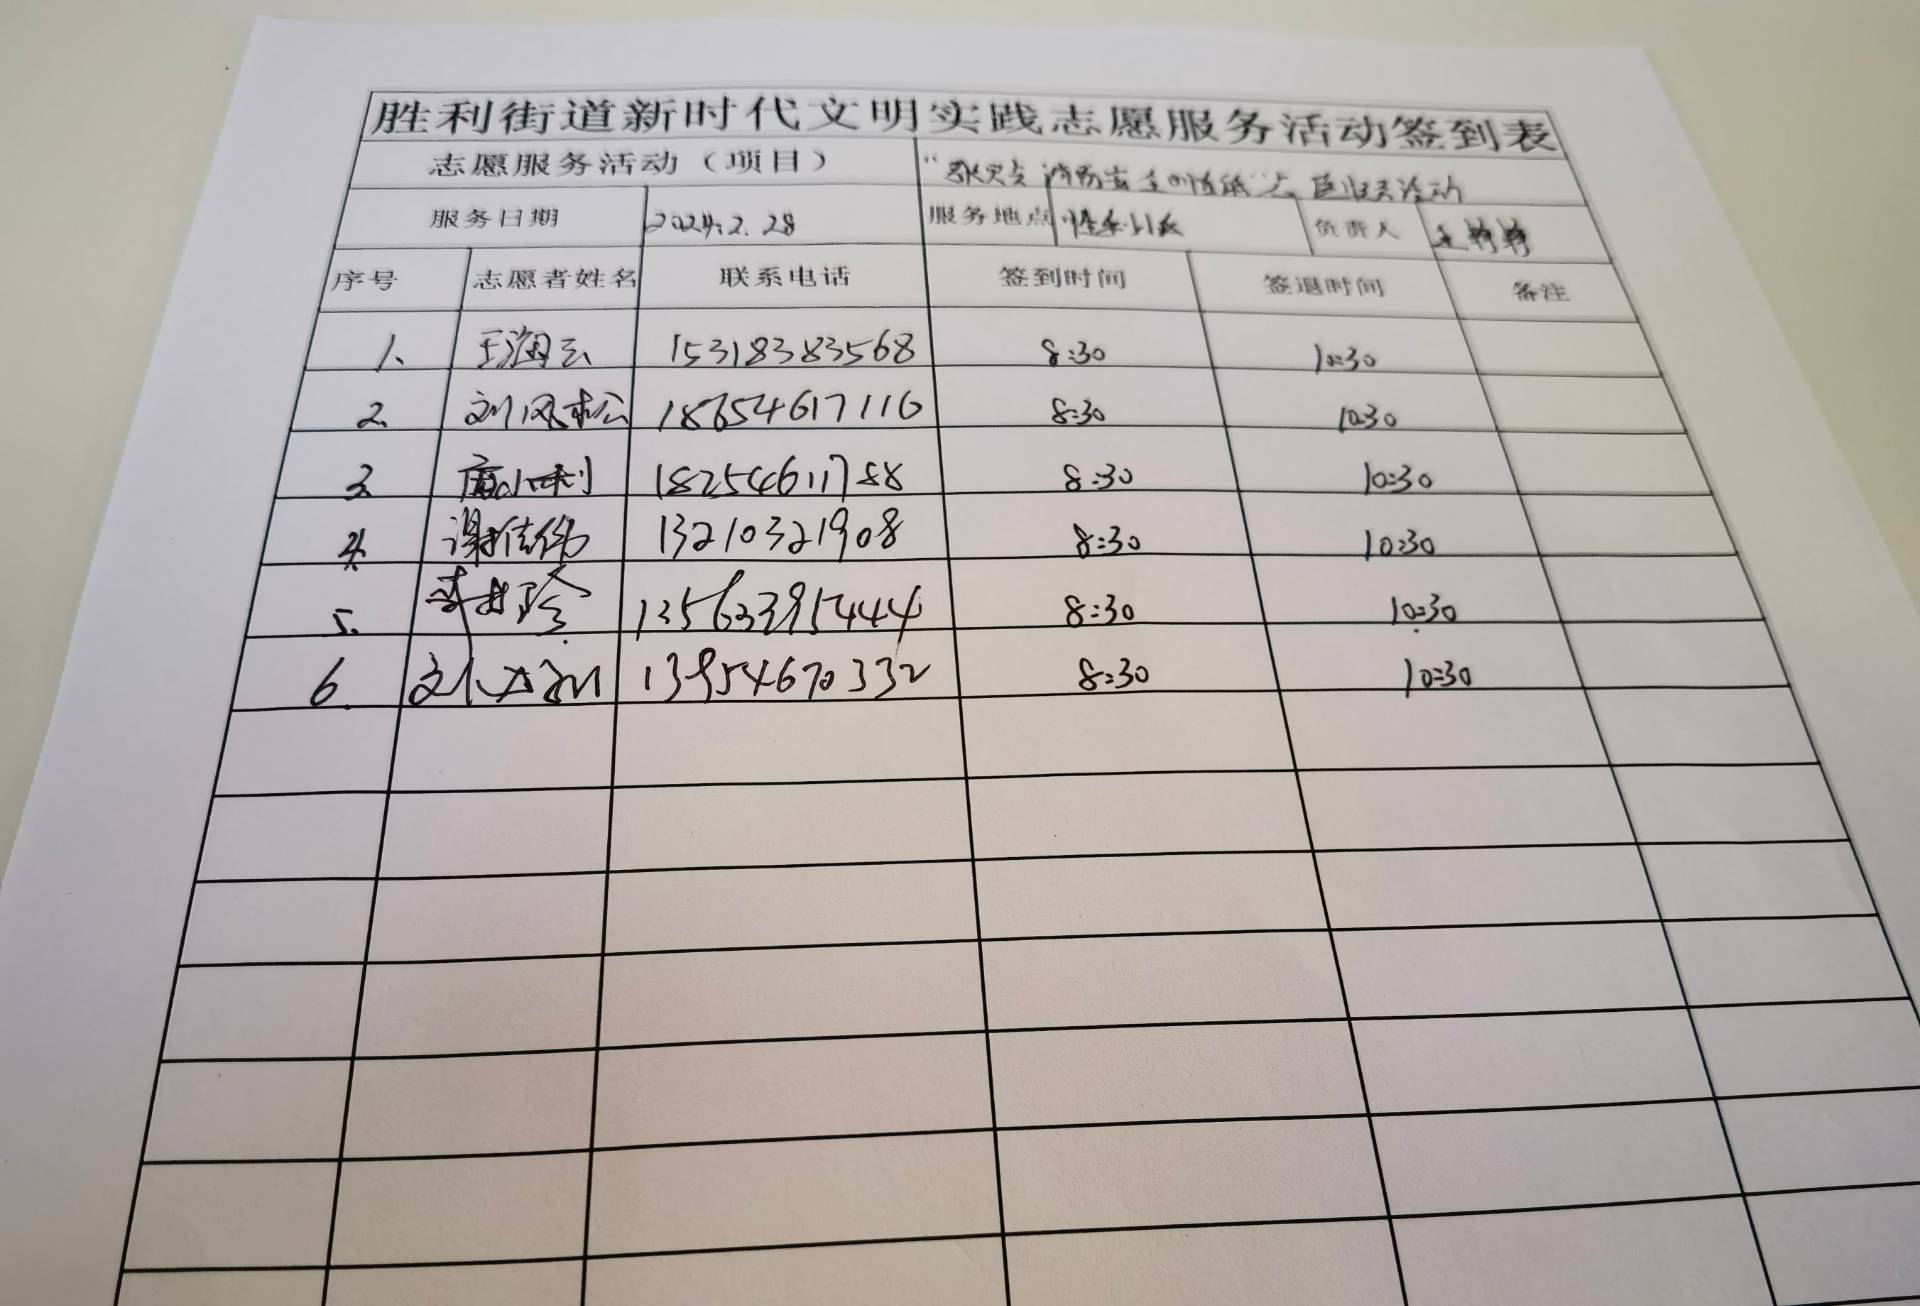 胜利街道新时代文明实践志愿服务活动签到表
志愿服务活动（项目）
服务日期 2024.2.28 服务地点 负责人
序号 志愿者姓名 联系电话 签到时间 签退时间 备注
1、 王海云 15318383568 8:30 10:30
2. 刘凤松 18654617116 8:30 10:30
3. 18254611788 8:30 10:30
4. 谢伟 13210321908 8:30 10:30
5. 13563395444 8:30 10:30
6. 13954670332 8:30 10:30